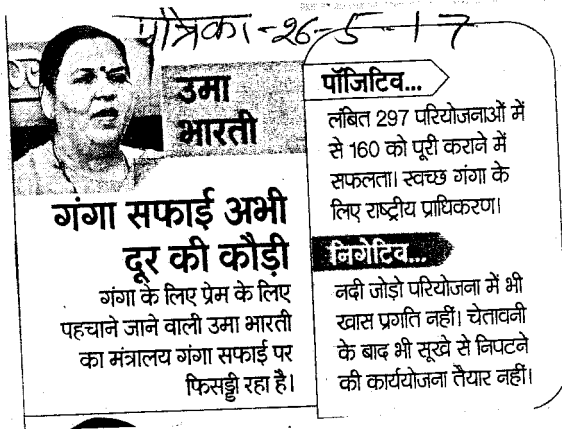 पत्रिका-26-5-17
उमा
भारती
गंगा सफाई अभी
दूर की कौड़ी
गंगा के लिए प्रेम के लिए
पहचाने जाने वाली उमा भारती
का मंत्रालय गंगा सफाई पर
फिसड्डी रहा है।
पॉजिटिव...
लंबित 297 परियोजनाओं में
से 160 को पूरी कराने में
सफलता। स्वच्छ गंगा के
लिए राष्ट्रीय प्राधिकरण।
निगेटिव...
नदी जोड़ो परियोजना में भी
खास प्रगति नहीं। चेतावनी
के बाद भी सूखे से निपटने
की कार्ययोजना तैयार नहीं।